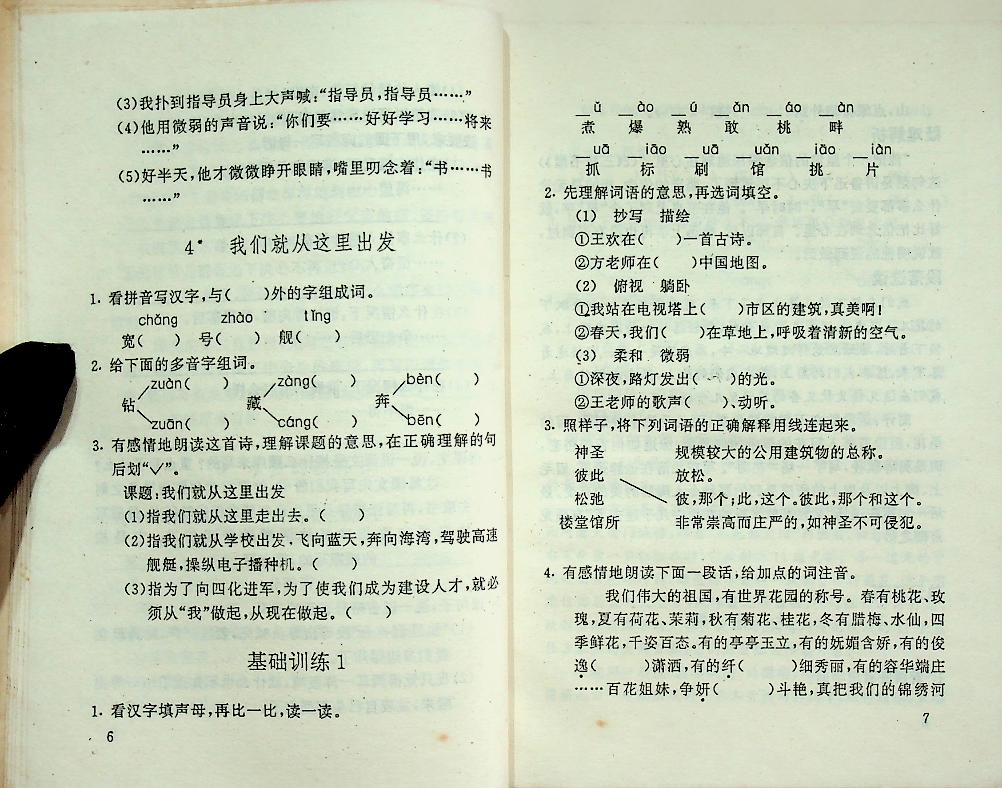 (3)我扑到指导员身上大声喊:“指导员,指导员……”
(4)他用微弱的声音说:“你们要……好好学习……将来
……”
(5)好半天,他才微微睁开眼睛,嘴里叨念着:“书……书
……”
4* 我们就从这里出发
1. 看拼音写汉字,与( )外的字组成词。
chǎng zhào tǐng
宽( ) 号( ) 舰( )
2. 给下面的多音字组词。
zuàn( ) zàng( ) bèn( )
钻 藏 奔
zuān( ) cáng( ) bēn( )
3. 有感情地朗读这首诗,理解课题的意思,在正确理解的句
后划“√”。
课题:我们就从这里出发
(1)指我们就从这里走出去。( )
(2)指我们就从学校出发,飞向蓝天,奔向海湾,驾驶高速
舰艇,操纵电子播种机。( )
(3)指为了向四化进军,为了使我们成为建设人才,就必
须从“我”做起,从现在做起。( )
基础训练1
1. 看汉字填声母,再比一比,读一读。
6
_ǔ _ào _ú _ǎn _áo _àn
煮 爆 熟 敢 桃 畔
_uā _iāo _uā _uǎn _iāo _iàn
抓 标 刷 馆 挑 片
2. 先理解词语的意思,再选词填空。
(1) 抄写 描绘
①王欢在( )一首古诗。
②方老师在( )中国地图。
(2) 俯视 躺卧
①我站在电视塔上( )市区的建筑,真美啊!
②春天,我们( )在草地上,呼吸着清新的空气。
(3) 柔和 微弱
①深夜,路灯发出( )的光。
②王老师的歌声( )、动听。
3. 照样子,将下列词语的正确解释用线连起来。
神圣 规模较大的公用建筑物的总称。
彼此 放松。
松弛 彼,那个;此,这个。彼此,那个和这个。
楼堂馆所 非常崇高而庄严的,如神圣不可侵犯。
4. 有感情地朗读下面一段话,给加点的词注音。
我们伟大的祖国,有世界花园的称号。春有桃花、玫
瑰,夏有荷花、茉莉,秋有菊花、桂花,冬有腊梅、水仙,四
季鲜花,千姿百态。有的亭亭玉立,有的妩媚含娇,有的俊
逸( )潇洒,有的纤( )细秀丽,有的容华端庄
……百花姐妹,争妍( )斗艳,真把我们的锦绣河
7